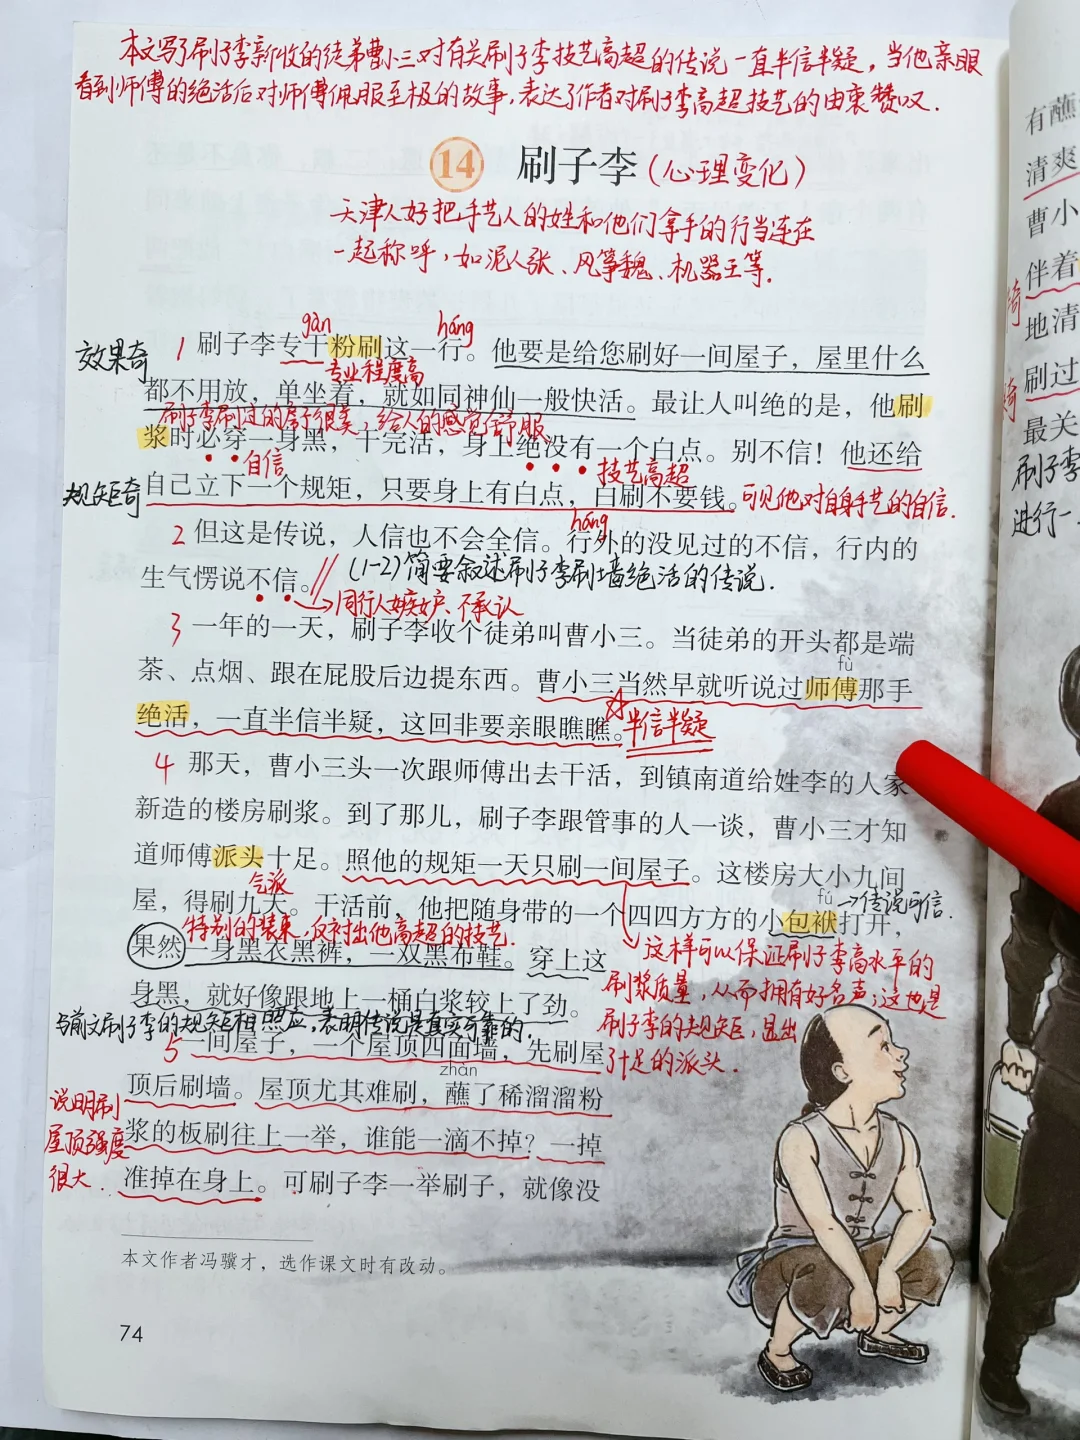 本文写了刷子李新收的徒弟曹小三对有关刷子李技艺高超的传说一直半信半疑，当他亲眼
看到师傅的绝活后对师傅佩服至极的故事，表达了作者对刷子李高超技艺的由衷赞叹.
14 刷子李（心理变化）
天津人好把手艺人的姓和他们拿手的行当连在
一起称呼，如泥人张、风筝魏、机器王等.
gàn háng
效果奇
1 刷子李专干粉刷这一行。他要是给您刷好一间屋子，屋里什么
专业程度高
都不用放，单坐着，就如同神仙一般快活。最让人叫绝的是，他刷
刷子李刷过的房子很美，给人的感觉很舒服
浆时必穿一身黑，干完活，身上绝没有一个白点。别不信！他还给
自信 技艺高超
规矩奇
自己立下一个规矩，只要身上有白点，白刷不要钱。可见他对自身手艺的自信.
háng
2 但这是传说，人信也不会全信。行外的没见过的不信，行内的
生气愣说不信。(1-2)简要叙述刷子李刷墙绝活的传说.
同行人嫉妒、不承认
3 一年的一天，刷子李收个徒弟叫曹小三。当徒弟的开头都是端
fù
茶、点烟、跟在屁股后边提东西。曹小三当然早就听说过师傅那手
绝活，一直半信半疑，这回非要亲眼瞧瞧。半信半疑
4 那天，曹小三头一次跟师傅出去干活，到镇南道给姓李的人家
新造的楼房刷浆。到了那儿，刷子李跟管事的人一谈，曹小三才知
道师傅派头十足。照他的规矩一天只刷一间屋子。这楼房大小九间
气派 fú
屋，得刷九天。干活前，他把随身带的一个四四方方的小包袱打开，
传说可信.
特别的装束，反衬出他高超的技艺.
果然一身黑衣黑裤，一双黑布鞋。穿上这
这样可以保证刷子李高水平的
刷浆质量，从而拥有好名声；这也是
刷子李的规矩，显出
了十足的派头.
身黑，就好像跟地上一桶白浆较上了劲。
与前文刷子李的规矩相照应，表明传说是真实可靠的.
5 一间屋子，一个屋顶四面墙，先刷屋
zhàn
顶后刷墙。屋顶尤其难刷，蘸了稀溜溜粉
说明刷
屋顶强度
很大.
浆的板刷往上一举，谁能一滴不掉？一掉
准掉在身上。可刷子李一举刷子，就像没
本文作者冯骥才，选作课文时有改动。
74
有蘸
清爽
曹小
伴着
奇
地清
刷过
奇
最关
刷子李
进行一